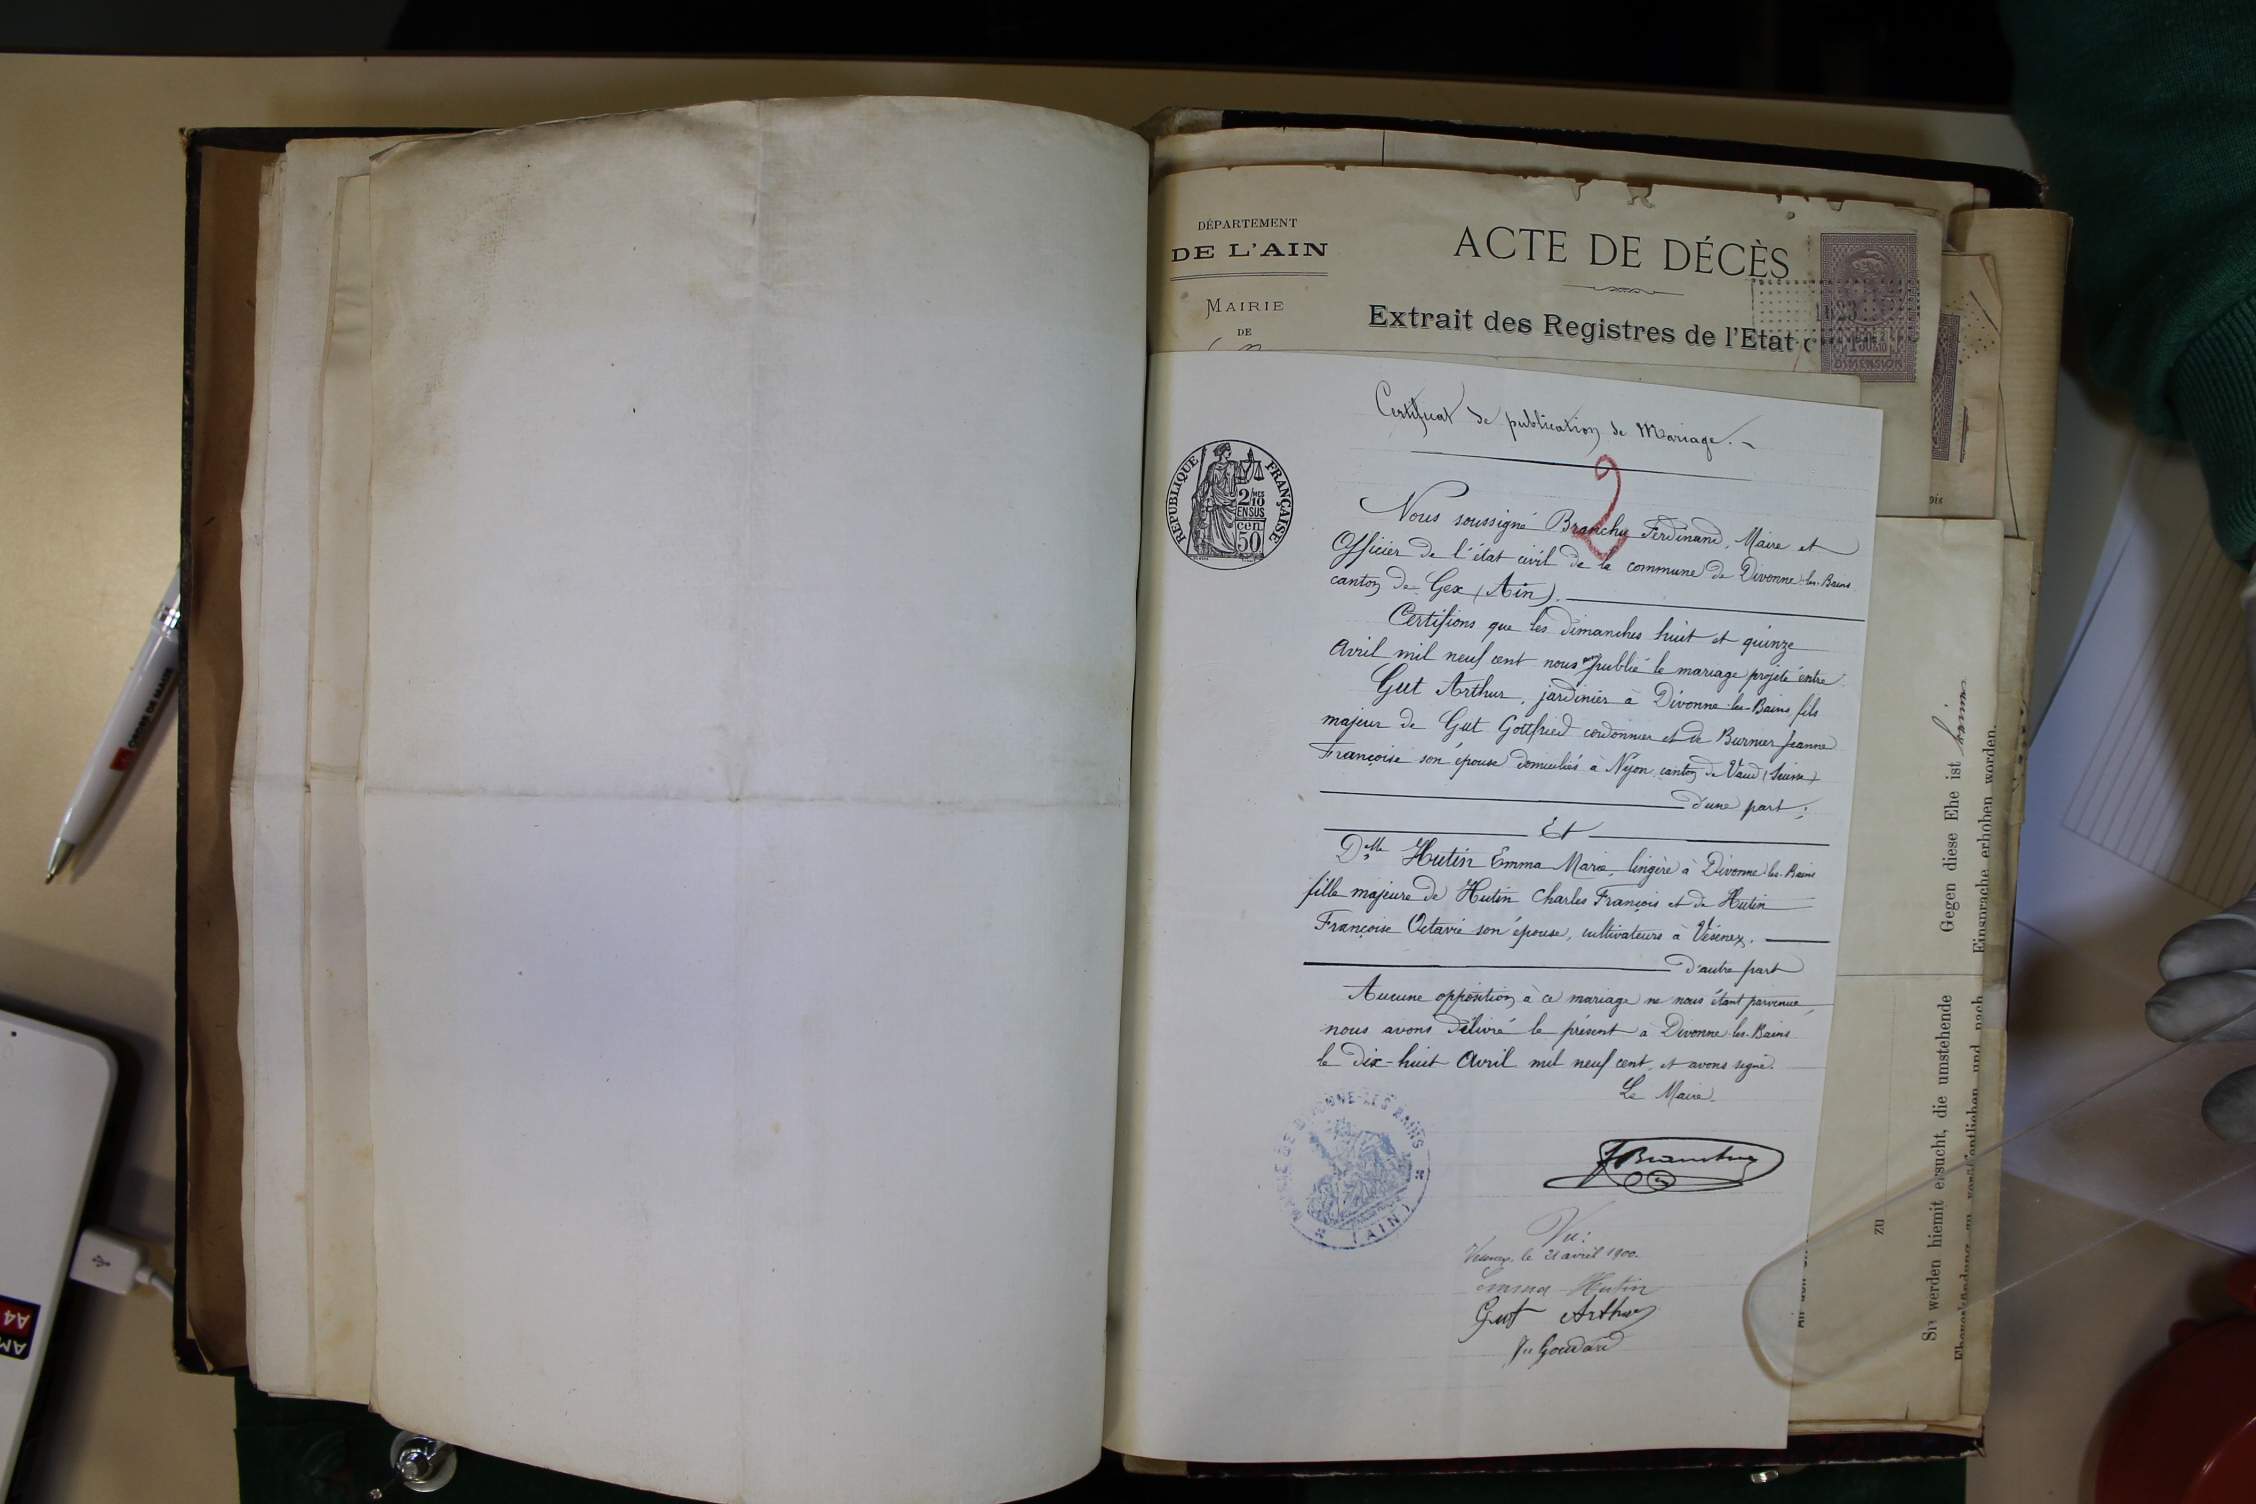 DÉPARTEMENT
DE L'AIN
MAIRIE
DE
ACTE DE DÉCÈS
Extrait des Registres de l'Etat c
1 50
DIMENSION
Certificat de publication de Mariage. -
2
RÉPUBLIQUE FRANÇAISE
2/10MES
EN SUS
cen
50
Nous soussigné Branchu Ferdinand, Maire et
Officier de l'état civil de la commune de Divonne-les-Bains
canton de Gex (Ain).
Certifions que les dimanches huit et quinze
Avril mil neuf cent nous avons publié le mariage projeté entre
Gut Arthur, jardinier à Divonne-les-Bains, fils
majeur de Gut Gottfried cordonnier et de Burnier Jeanne
Françoise son épouse domiciliés à Nyon, canton de Vaud (Suisse)
d'une part;
Et
Dlle Hutin Emma Marie, lingère à Divonne-les-Bains
fille majeure de Hutin Charles François et de Hutin
Françoise Octavie son épouse, cultivateurs à Vésenex.
d'autre part
Aucune opposition à ce mariage ne nous étant parvenue,
nous avons délivré le présent à Divonne-les-Bains
le dix-huit Avril mil neuf cent, et avons signé.
Le Maire
F Branchu
MAIRIE DE DIVONNE-LES-BAINS
(AIN)
Vu:
Vesenex, le 21 avril 1900.
Emma Hutin
Gut Arthur
Goudard
Gegen diese Ehe ist
Einsprache erhoben worden.
Sie werden hiemit ersucht, die umstehende
zu
CROSS DE MAIN
A4